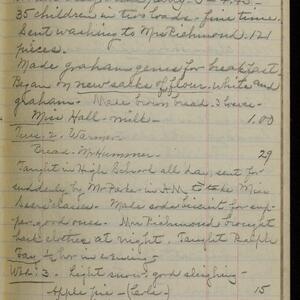 35 children in two loads - fine time.
Sent washing to Mrs Richmond. 121
pieces.
Made graham gems for breakfast.
Began on new sacks of flour. White and
graham. Made brown bread. 3 loaves.
Miss Hall - milk - 1.00
Tues. 2. Warmer.
Bread. Mr Hummer. 29
Taught in High School all day, sent for
suddenly by Mr Parke in A.M. to take Miss
class. Made soda biscuit for sup-
per good ones. Mrs Richmond brought
back clothes at night. Taught Ralph
Fay ½ hr in evening.
Wed. 3. Light snow. good sleighing -
Apple pie - 15